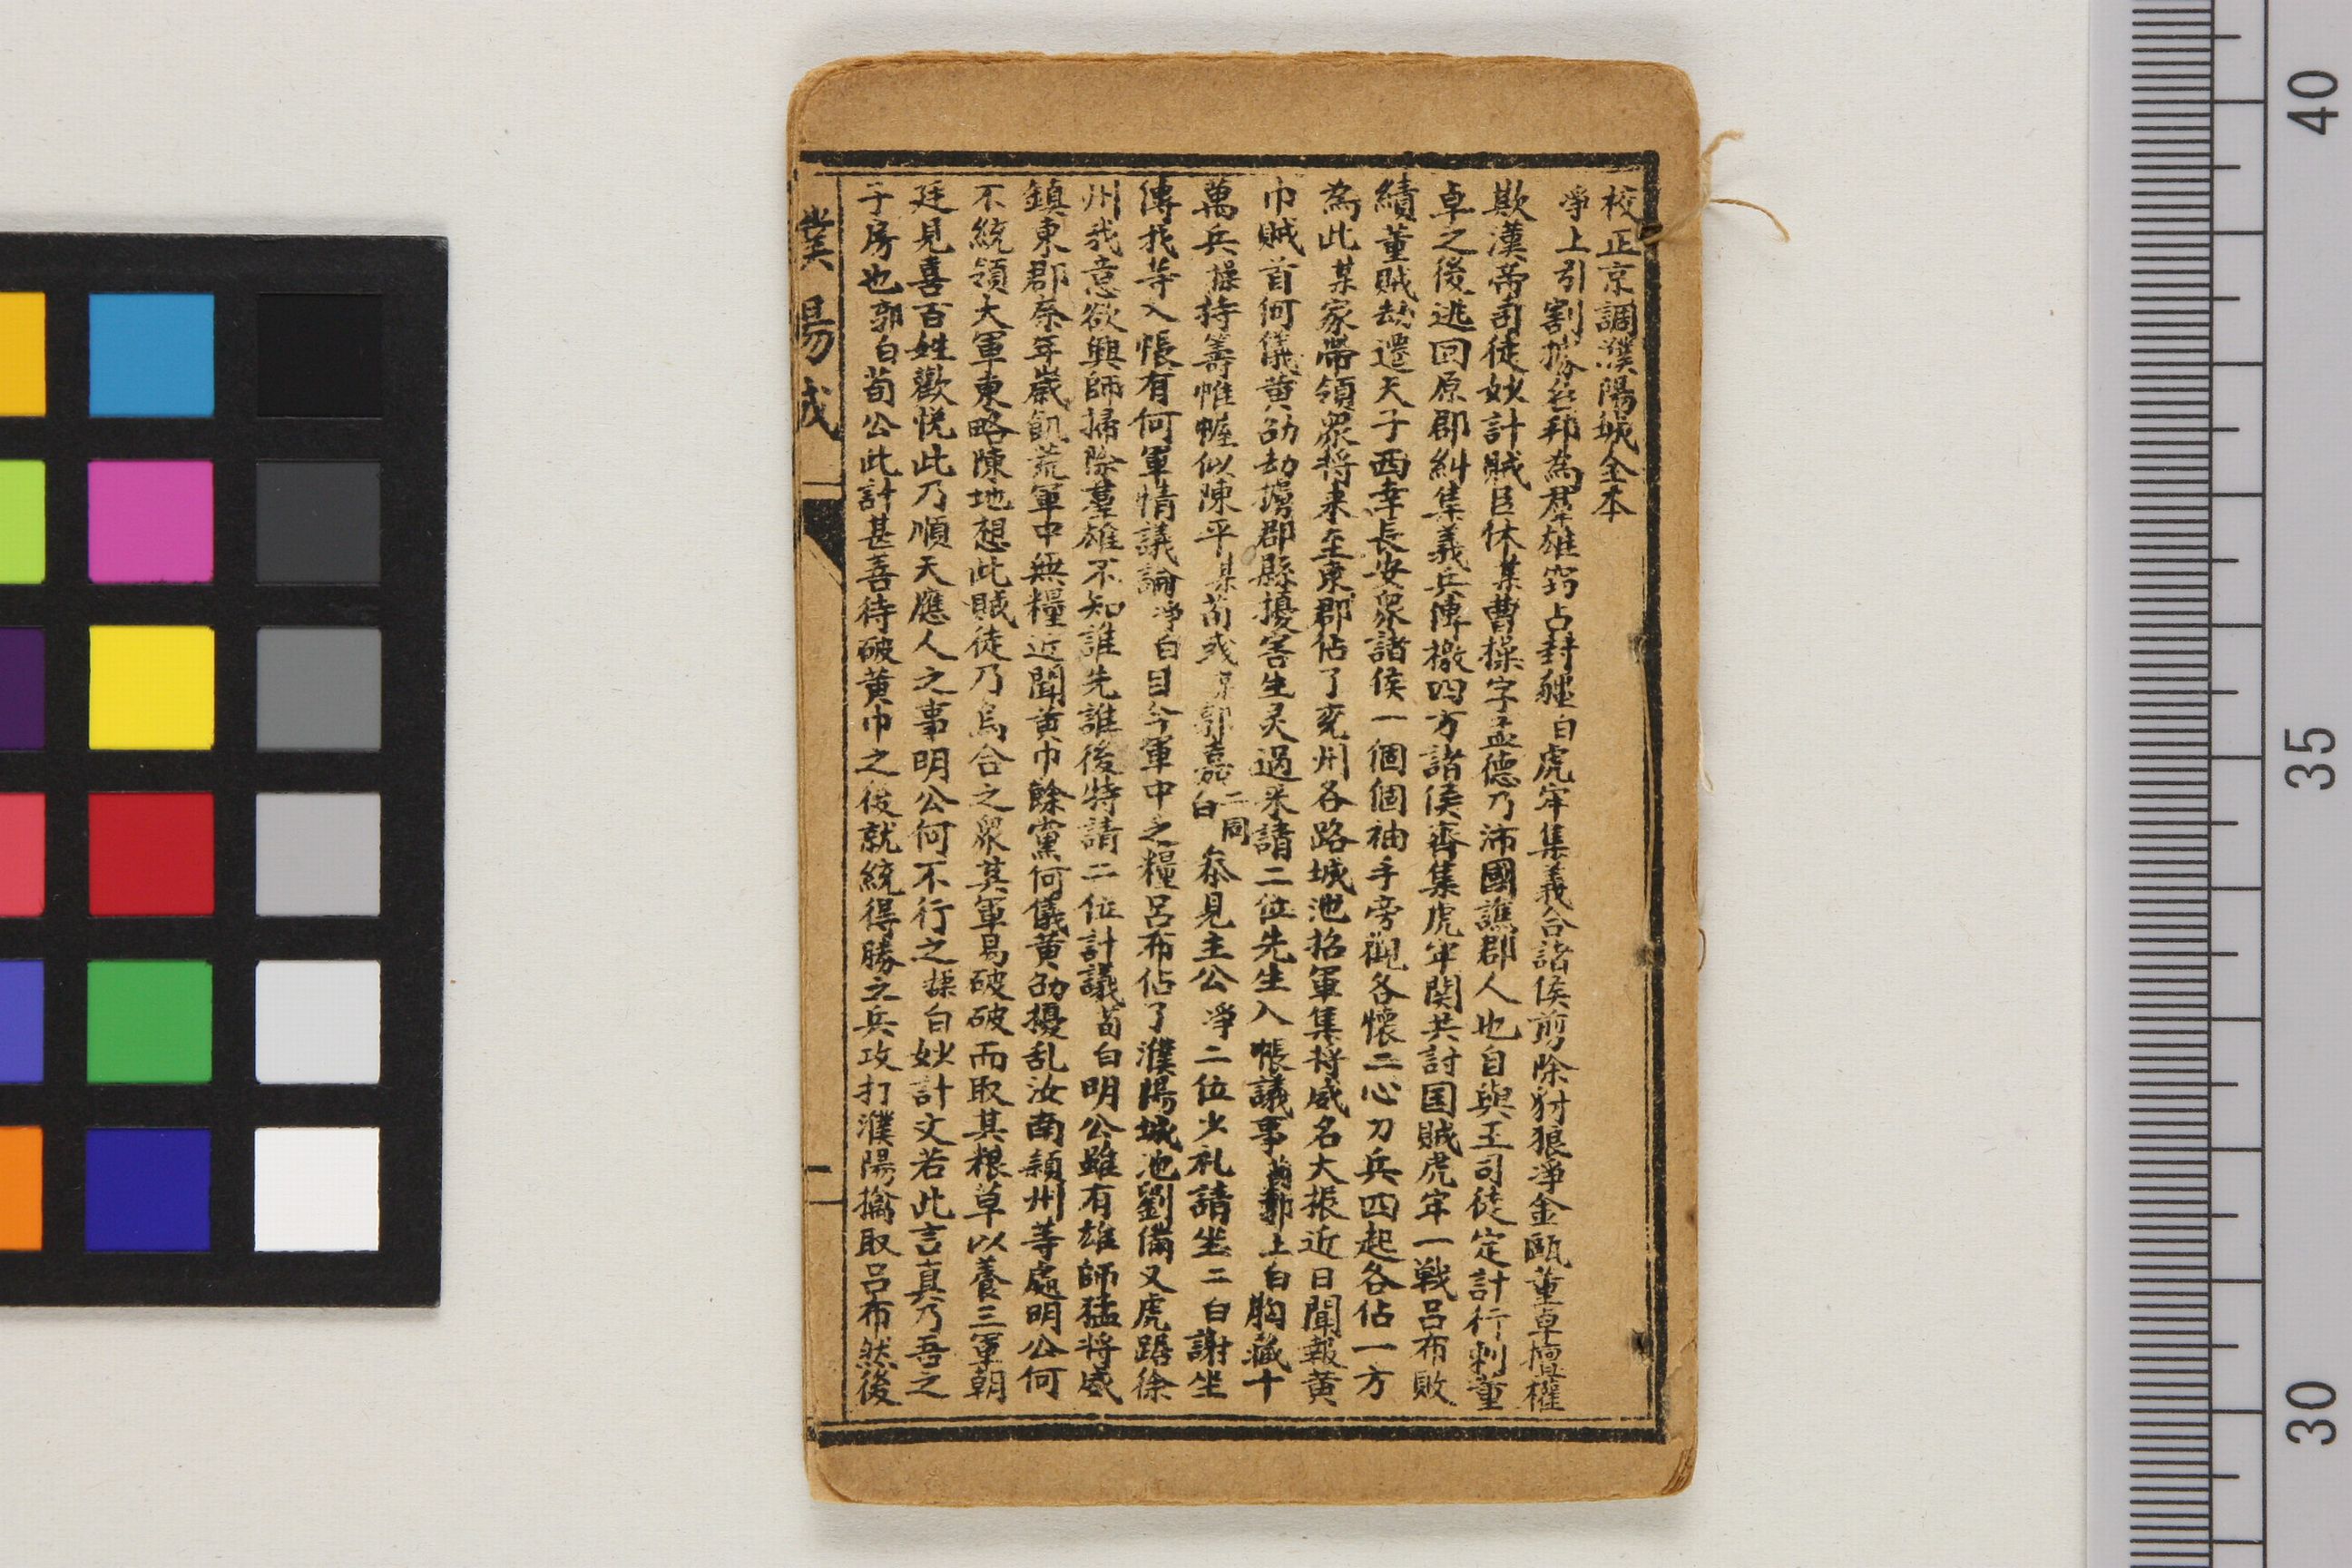 校正京調濮陽城全本
淨上引割據各邦為羣雄窃占封疆白虎牢集義合諸侯剪除豺狼淨金甌董卓擅權
欺漢帝司徒妙計賊臣休某曹操字孟德乃沛國譙郡人也自與王司徒定計行刺董
卓之後逃回原郡糾集義兵傳檄四方諸侯齊集虎牢関共討国賊虎牢一戰呂布敗
績董賊劫遷天子西幸長安衆諸侯一個個袖手旁觀各懷二心刀兵四起各佔一方
為此某家帶領衆将来至東郡佔了兗州各路城池招軍集将威名大振近日聞報黃
巾賊首何儀黃劭劫擄郡縣擾害生灵過来請二位先生入帳議事荀郭上白胸藏十
萬兵操持籌帷幄似陳平某荀彧郭嘉二同白叅見主公淨二位少礼請坐二白謝坐
傳我等入帳有何軍情議論淨白目今軍中乏糧呂布佔了濮陽城池劉備又虎踞徐
州我意欲興師掃除羣雄不知誰先誰後特請二位計議荀白明公雖有雄師猛将威
鎮東郡奈年歲飢荒軍中無糧近聞黃巾餘黨何儀黃劭擾乱汝南潁州等處明公何
不統領大軍東略陳地想此賊徒乃烏合之衆其軍易破破而取其粮草以養三軍朝
廷見喜百姓歡悅此乃順天應人之事明公何不行之操白妙計文若此言真乃吾之
子房也郭白荀公此計甚善待破黃巾之後就統得勝之兵攻打濮陽擒取呂布然後
濮陽城
二
40
35
30